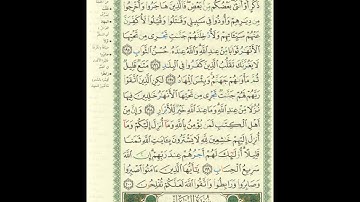 ذَكَرٍ أَوْ أُنثَىٰ بَعْضُكُم مِّنۢ بَعْضٍ فَٱلَّذِينَ هَاجَرُوا۟ وَأُخْرِجُوا۟
مِن دِيَٰرِهِمْ وَأُوذُوا۟ فِى سَبِيلِى وَقَٰتَلُوا۟ وَقُتِلُوا۟ لَأُكَفِّرَنَّ
عَنْهُمْ سَيِّـَٔاتِهِمْ وَلَأُدْخِلَنَّهُمْ جَنَّٰتٍ تَجْرِى مِن تَحْتِهَا
ٱلْأَنْهَٰرُ ثَوَابًا مِّنْ عِندِ ٱللَّهِ وَٱللَّهُ عِندَهُۥ حُسْنُ ٱلثَّوَابِ
١٩٥ لَا يَغُرَّنَّكَ تَقَلُّبُ ٱلَّذِينَ كَفَرُوا۟ فِى ٱلْبِلَٰدِ ١٩٦ مَتَٰعٌ قَلِيلٌ
ثُمَّ مَأْوَىٰهُمْ جَهَنَّمُ وَبِئْسَ ٱلْمِهَادُ ١٩٧ لَٰكِنِ ٱلَّذِينَ ٱتَّقَوْا۟
رَبَّهُمْ لَهُمْ جَنَّٰتٌ تَجْرِى مِن تَحْتِهَا ٱلْأَنْهَٰرُ خَٰلِدِينَ فِيهَا
نُزُلًا مِّنْ عِندِ ٱللَّهِ وَمَا عِندَ ٱللَّهِ خَيْرٌ لِّلْأَبْرَارِ ١٩٨ وَإِنَّ مِنْ
أَهْلِ ٱلْكِتَٰبِ لَمَن يُؤْمِنُ بِٱللَّهِ وَمَآ أُنزِلَ إِلَيْكُمْ وَمَآ
أُنزِلَ إِلَيْهِمْ خَٰشِعِينَ لِلَّهِ لَا يَشْتَرُونَ بِـَٔايَٰتِ ٱللَّهِ ثَمَنًا
قَلِيلًا أُو۟لَٰٓئِكَ لَهُمْ أَجْرُهُمْ عِندَ رَبِّهِمْ إِنَّ ٱللَّهَ
سَرِيعُ ٱلْحِسَابِ ١٩٩ يَٰٓأَيُّهَا ٱلَّذِينَ ءَامَنُوا۟ ٱصْبِرُوا۟
وَصَابِرُوا۟ وَرَابِطُوا۟ وَٱتَّقُوا۟ ٱللَّهَ لَعَلَّكُمْ تُفْلِحُونَ ٢٠٠